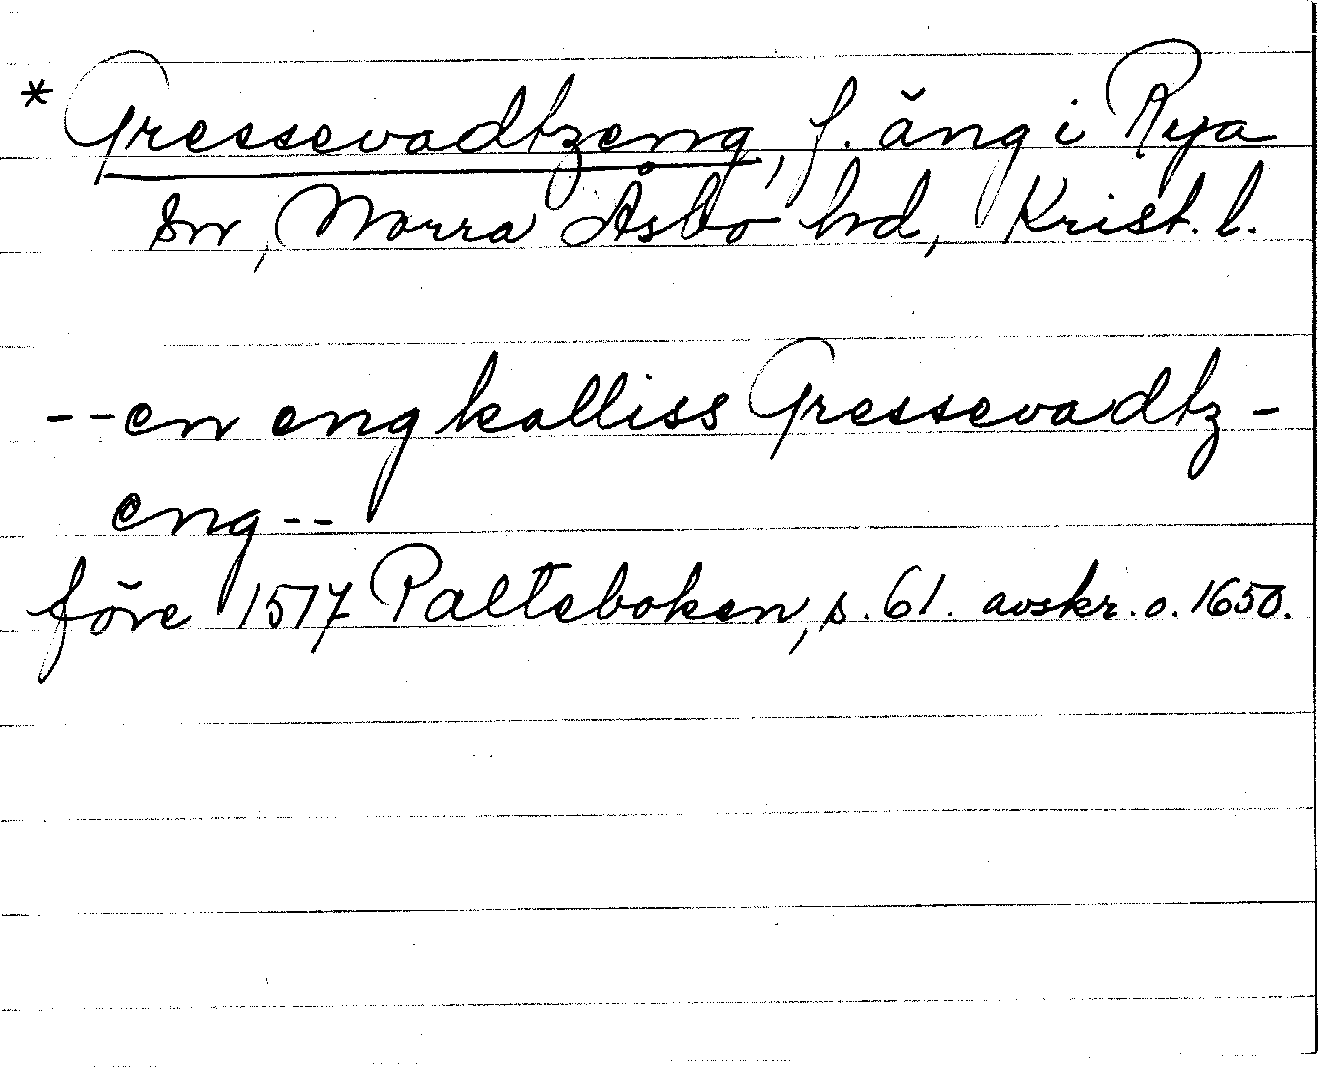 * Gressevadtzeng, f. äng i Rya
sn, Norra Åsbo hd, Krist. l.
-- en eng kalliss Gressevadtz-
eng --
före 1517 Palteboken, s. 61. avskr. o. 1650.